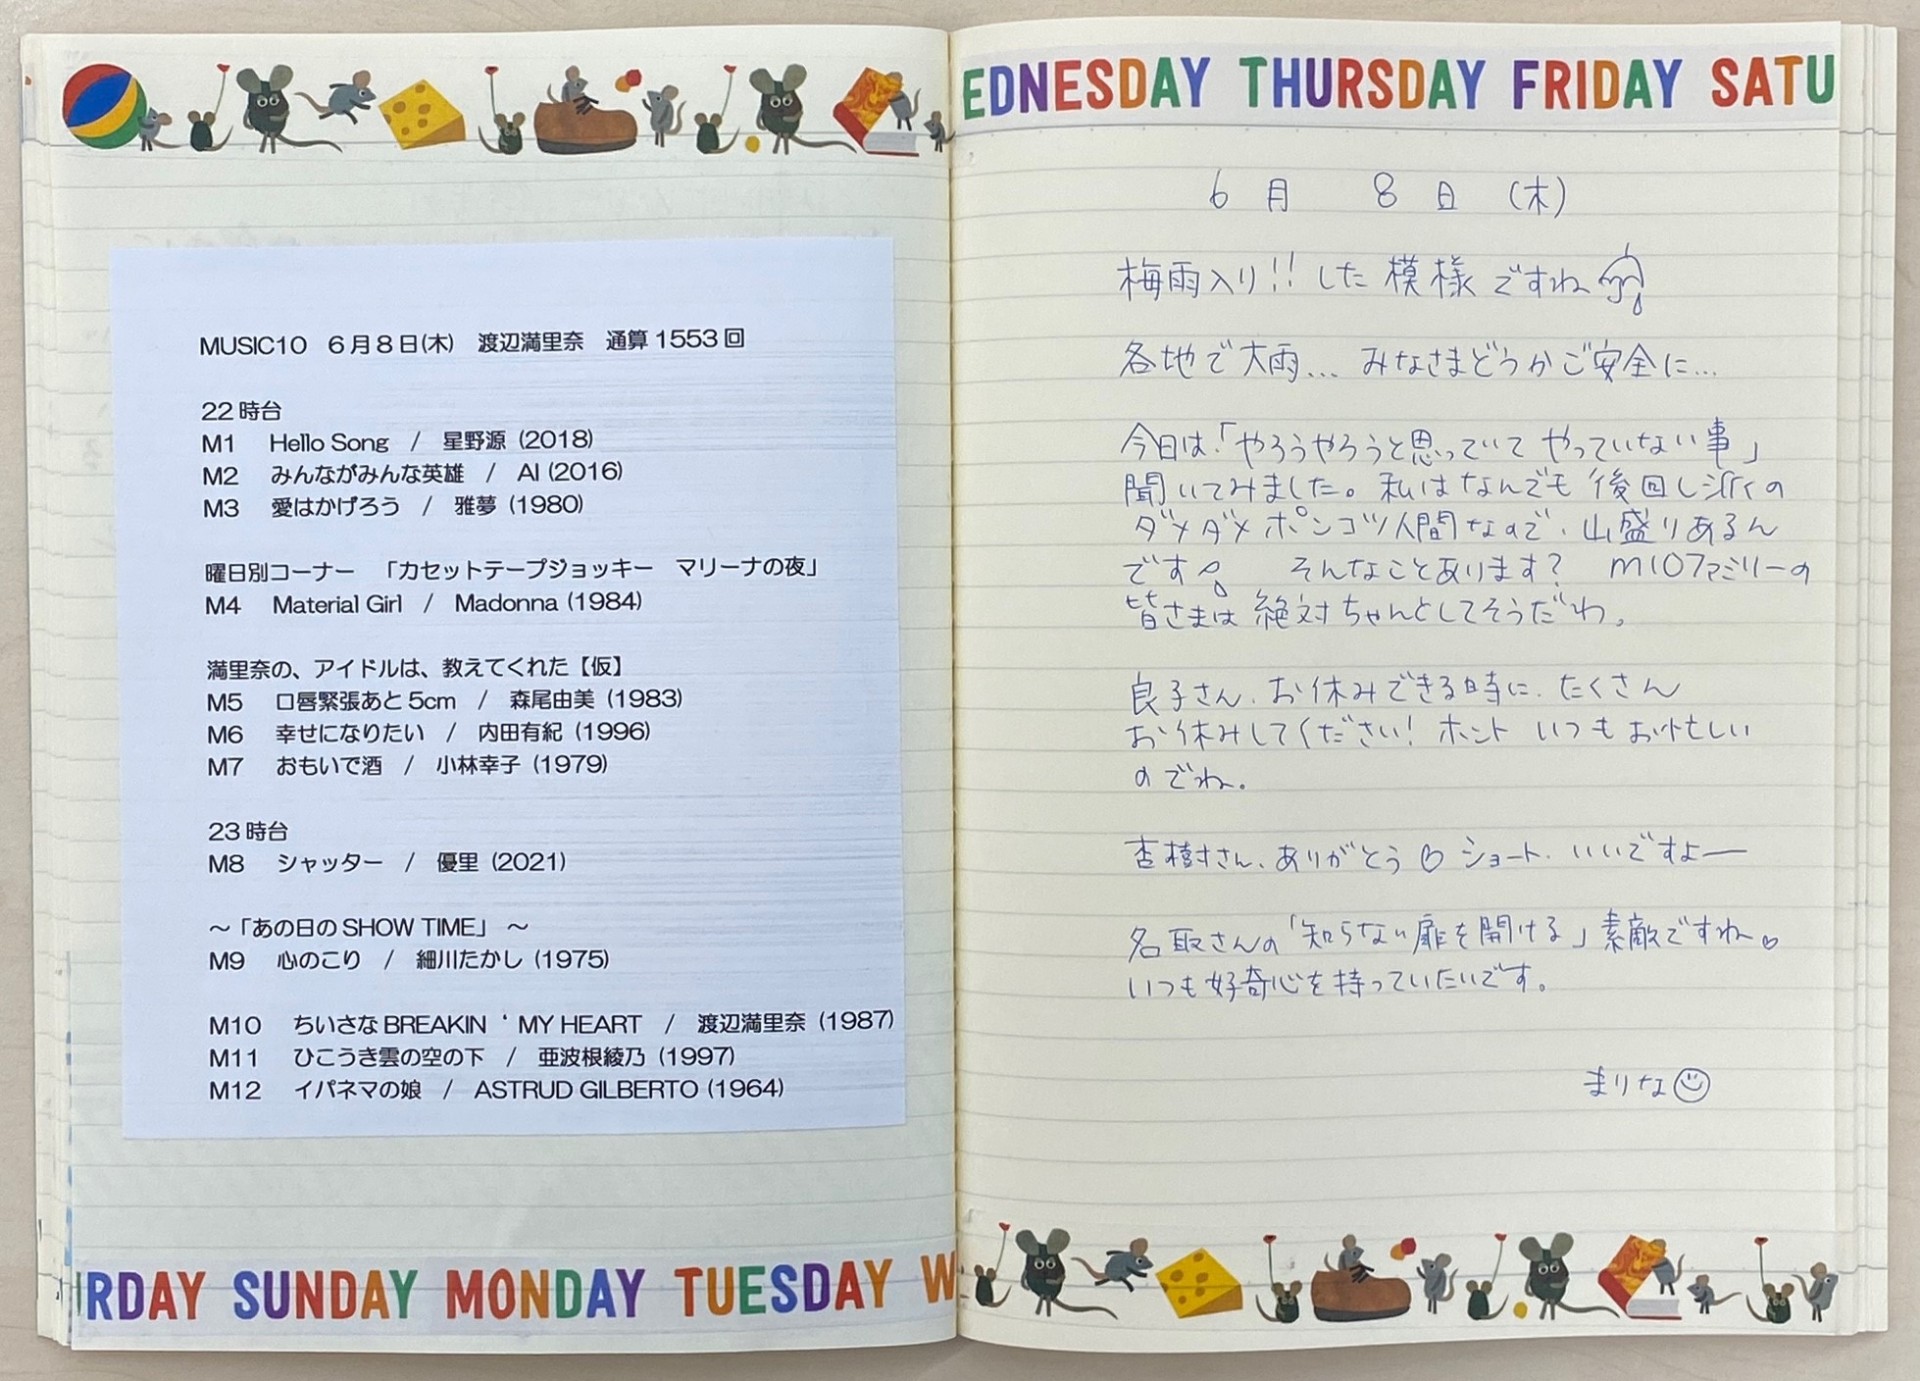 MUSIC10　6月8日(木)　渡辺満里奈　通算1553回
22時台
M1　Hello Song　/　星野源 (2018)
M2　みんながみんな英雄　/　AI (2016)
M3　愛はかげろう　/　雅夢 (1980)
曜日別コーナー　「カセットテープジョッキー　マリーナの夜」
M4　Material Girl　/　Madonna (1984)
満里奈の、アイドルは、教えてくれた【仮】
M5　口唇緊張あと5cm　/　森尾由美 (1983)
M6　幸せになりたい　/　内田有紀 (1996)
M7　おもいで酒　/　小林幸子 (1979)
23時台
M8　シャッター　/　優里 (2021)
～「あの日のSHOW TIME」～
M9　心のこり　/　細川たかし (1975)
M10　ちいさなBREAKIN ‘ MY HEART　/　渡辺満里奈 (1987)
M11　ひこうき雲の空の下　/　亜波根綾乃 (1997)
M12　イパネマの娘　/　ASTRUD GILBERTO (1964)
RDAY SUNDAY MONDAY TUESDAY W
EDNESDAY THURSDAY FRIDAY SATU
6月　8日　(木)
梅雨入り!! した模様ですね
各地で大雨... みなさまどうかご安全に...
今日は、「やろうやろうと思っていて やっていない事」
聞いてみました。私はなんでも後回しの
ダメダメポンコツ人間なので、山盛りあるん
です　そんなことあります?　m10ファミリーの
皆さまは絶対ちゃんとしてそうだわ。
良子さん、お休みできる時に、たくさん
お休みしてください! ホント いつもお忙しい
のでね。
杏樹さん、ありがとう♡ ショート、いいですよー
名取さんの「知らない扉を開ける」素敵ですね♡
いつも好奇心を持っていたいです。
まりな